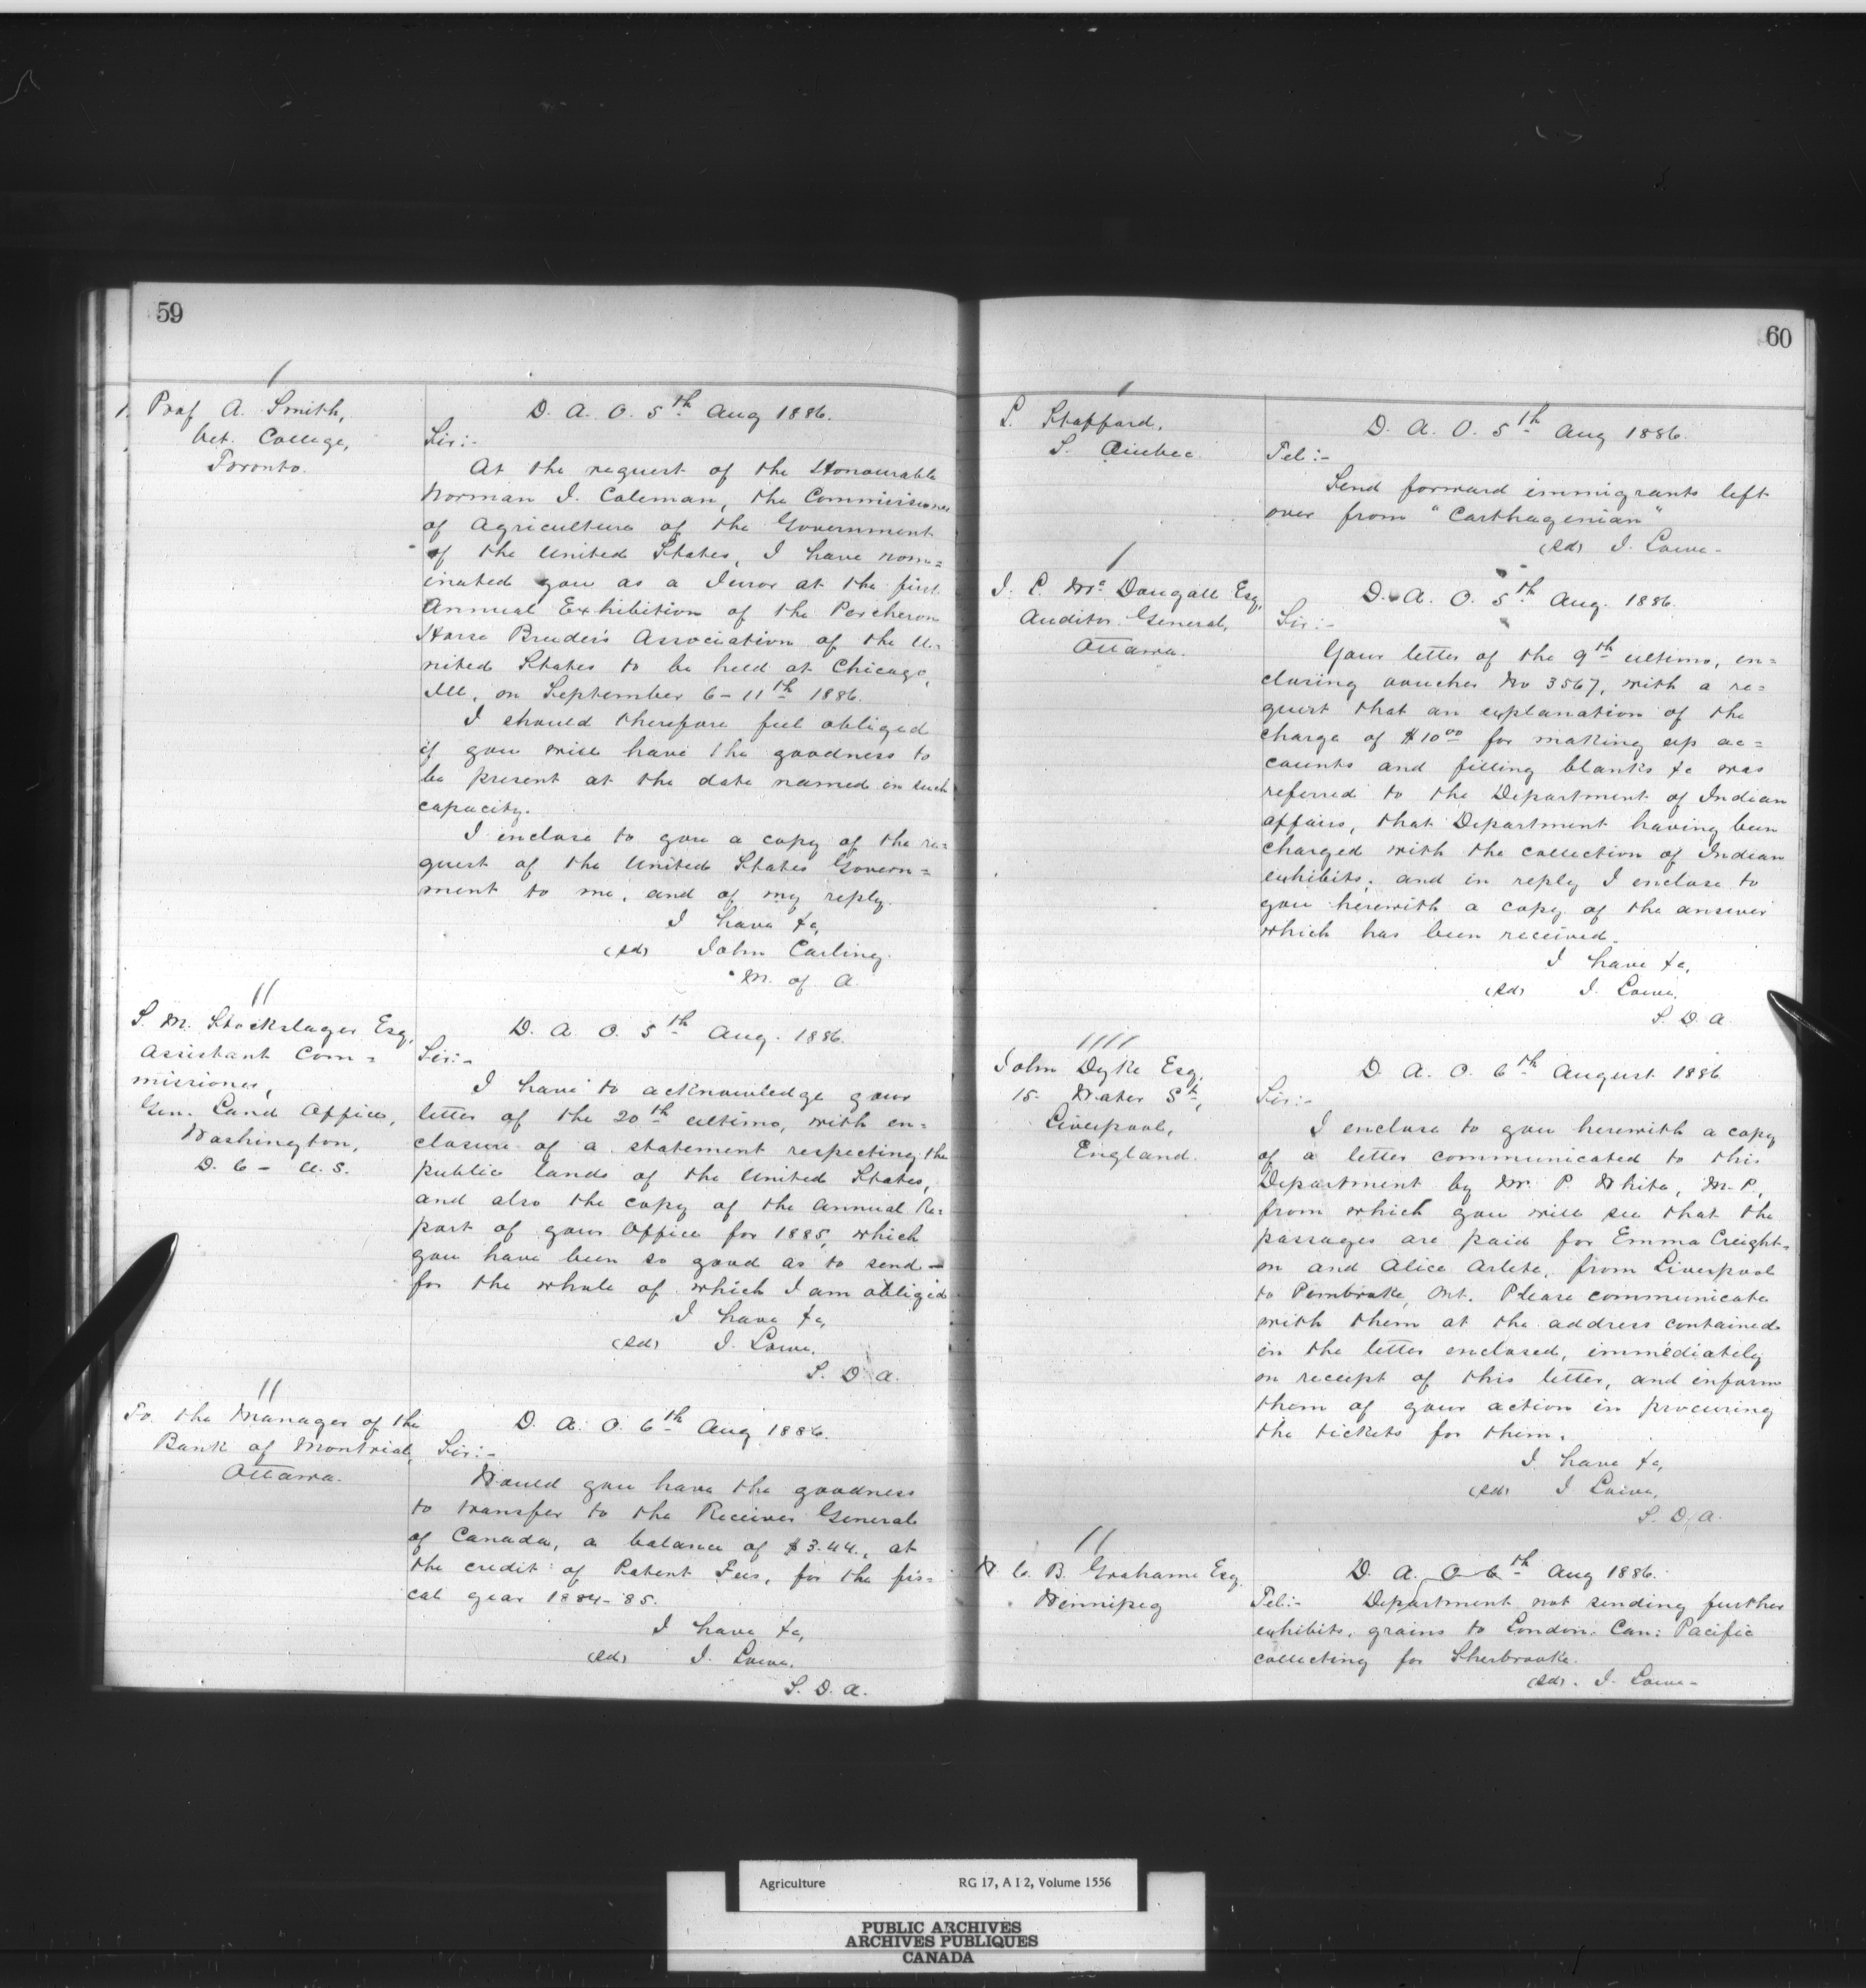 59
1. Prof A. Smith,
Vet. College,
Toronto.
D. A. O. 5th Aug 1886.
Sir:-
At the request of the Honourable
Norman J. Coleman, the Commissioner
of Agriculture of the Government
of the United States, I have nom=
inated you as a Juror at the first
Annual Exhibition of the Percheron
Horse Breeder's Association of the U=
nited States to be held at Chicago,
Ill, on September 6-11th 1886.
I should therefore feel obliged
if you will have the goodness to
be present at the date named in such
capacity.
I enclose to you a copy of the re=
quest of the United States Govern=
ment to me, and of my reply.
I have &c,
(sd) John Carling.
M. of A.
S. M. Stockslager Esq,
Assistant Com=
missioner,
Gen. Land Office,
Washington,
D. C - U. S.
D. A. O. 5th Aug. 1886.
Sir:-
I have to acknowledge your
letter of the 20th ultimo, with en=
closure of a statement respecting the
public lands of the United States,
and also the copy of the Annual Re=
port of your Office for 1885, which
you have been so good as to send -
for the whole of which I am obliged
I have &c,
(sd) J. Lowe.
S. D. A.
To the Manager of the
Bank of Montreal,
Ottawa.
D. A. O. 6th Aug 1886.
Sir:-
Would you have the goodness
to transfer to the Receiver General
of Canada, a balance of $3.44., at
the credit of Patent Fees, for the fis=
cal year 1884-'85.
I have &c,
(sd) J. Lowe.
S. D. A.
60
L. Stafford,
S. Quebec.
D. A. O. 5th Aug 1886.
Tel:-
Send forward immigrants left
over from "Carthagenian"
(sd) J. Lowe-
J. L. McDougall Esq,
Auditor General,
Ottawa.
D. A. O. 5th Aug. 1886.
Sir:-
Your letter of the 9th ultimo, en=
closing voucher No 3567, with a re=
quest that an explanation of the
charge of $10.00 for making up ac=
counts and filling blanks &c was
referred to the Department of Indian
affairs, that Department having been
charged with the collection of Indian
exhibits; and in reply I enclose to
you herewith a copy of the answer
which has been received.
I have &c,
(sd) J. Lowe.
S. D. A.
John Dyke Esq,
15- Water St,
Liverpool,
England.
D. A. O. 6th August 1886
Sir:-
I enclose to you herewith a copy
of a letter communicated to this
Department by Mr. P. White, M.P,
from which you will see that the
passages are paid for Emma Creight=
on and Alice Arlete, from Liverpool
to Pembroke, Ont. Please communicate
with them at the address contained
in the letter enclosed, immediately
on receipt of this letter, and inform
them of your action in procuring
the tickets for them.
I have &c,
(sd) J Lowe,
S. D. A.
W. C. B. Grahame Esq.
Winnipeg
D. A. O 6th Aug 1886.
Tel:- Department not sending further
exhibits, grains to London. Can: Pacific
collecting for Sherbrooke.
(sd). J. Lowe-
Agriculture RG 17, A I 2, Volume 1556
PUBLIC ARCHIVES
ARCHIVES PUBLIQUES
CANADA